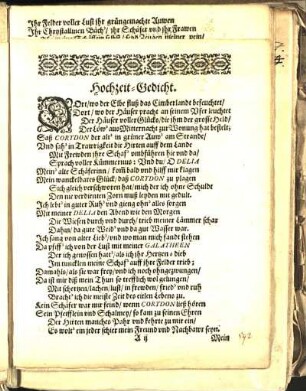 Ihr Felder voller Lust ihr grüngemachte Auwen
Ihr Chrystallinen Bäch/ ihr Schäfer und ihr Frawen
Hochzeit-Gedicht.
DOrt/ wo der Elbe fluß das Cimberlandt befeuchtet/
Dort/ wo der Häuser pracht an seinem Ufer leuchtet
Der Häuser voller Glücks/ die ihm der grosse Held/
Der Löw' aus Mitternacht zur Wonung hat bestelt;
Saß CORYDON der alt' in grüner Auw' am Strande/
Und sah' in Trawrigkeit die Hirten auff dem Lande
Mit Frewden ihre Schaf' umbführen hin und da/
Sprach voller Kümmernus: Und du/ O DELIA
Mein' alte Schäferinn/ kom bald und hilff mir klagen
Mein wunderbares Glück/ daß CORYDON zu plagen
Sich gleich verschworen hat/ mich der ich ohne Schuldt
Den nie verdienten Zorn muß leyden mit gedult.
Ich lebt' in guter Ruh' und gieng ohn' alles sorgen
Mit meiner DELIA den Abend wie den Morgen
Die Wiesen durch und durch/ trieb meiner Lämmer schar
Dahin/ da gute Weid' und da gut Wasser war.
Ich sang von alter Lieb'/ und wo man mich fandt stehen
Da pfiff' ich von der Lust mit meiner GALATHEEN
Der ich genossen hatt'/ als ich ihr Hertzen-dieb
Jen meine Schaf' auff ihre Felder trieb;
Damahls/ als sie war frey/ und ich noch ohngezwungen/
Da ist mir diß mein Thun so trefflich wol gelungen/
Mit schertzen/ lachen/ lust/ in frewden/ fried' und ruh
Bracht' ich die meiste Zeit des edlen Lebens zu.
Kein Schäfer war mir feind/ wenn CORYDON ließ hören
Sein Pfeifflein und Schalmey/ so kam zu seinen Ehren
Der Hirten manches Pahr und kehrte zu mir ein/
Es wolt' ein jeder schier mein Freund und Nachbawr seyn.
A ij
Mein